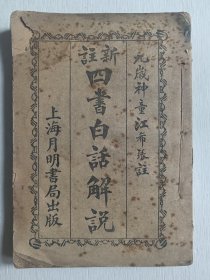 九歲神童江希張註
新註
四書白話解說
上海月明書局出版